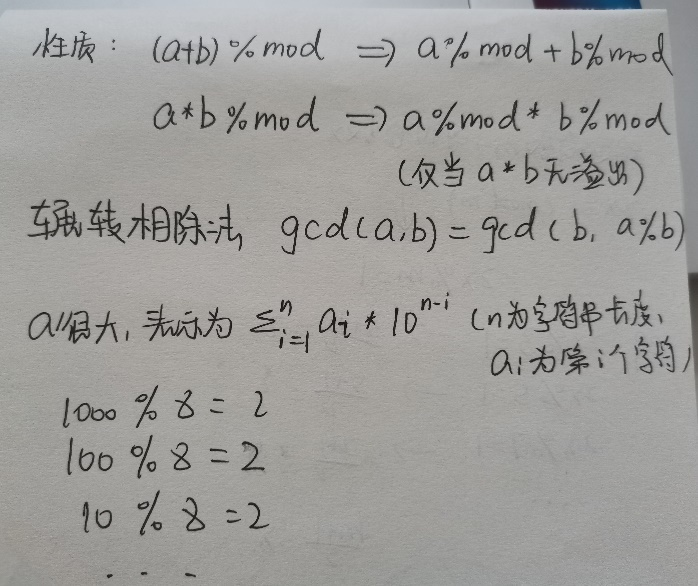 性质: (a+b) % mod ⇒ a% mod + b% mod
a*b % mod ⇒ a%mod * b%mod
(仅当 a*b无溢出)
辗转相除法 gcd(a,b) = gcd(b, a%b)
a很大, 表示为 Σⁿᵢ₌₁ aᵢ * 10ⁿ⁻ⁱ (n为字符串长度,
aᵢ为第i个字符)
1000 % 8 = 2
100 % 8 = 2
10 % 8 = 2
...